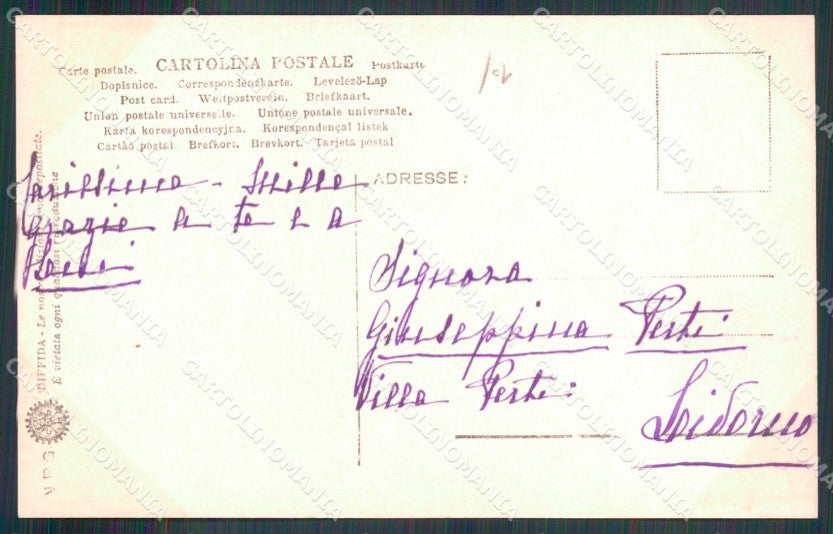 CARTOLINA POSTALE
Carte postale. Postkarte
Dopisnice. Correspondenzkarte. Levelező-Lap
Post card. Weltpostverein. Briefkaart.
Union postale universelle. Unione postale universale.
Karta korespondencyjna. Korespondençal listek
Cartão postal. Brefkort. Brevkort. Tarjeta postal
Carissima - Mille
grazie a te e a
ADRESSE:
Signora
Giuseppina Perti
Villa Perti:
DIFFIDA - Le nostre
È vietata ogni qualsiasi riproduzione
CARTOLINOMANIA